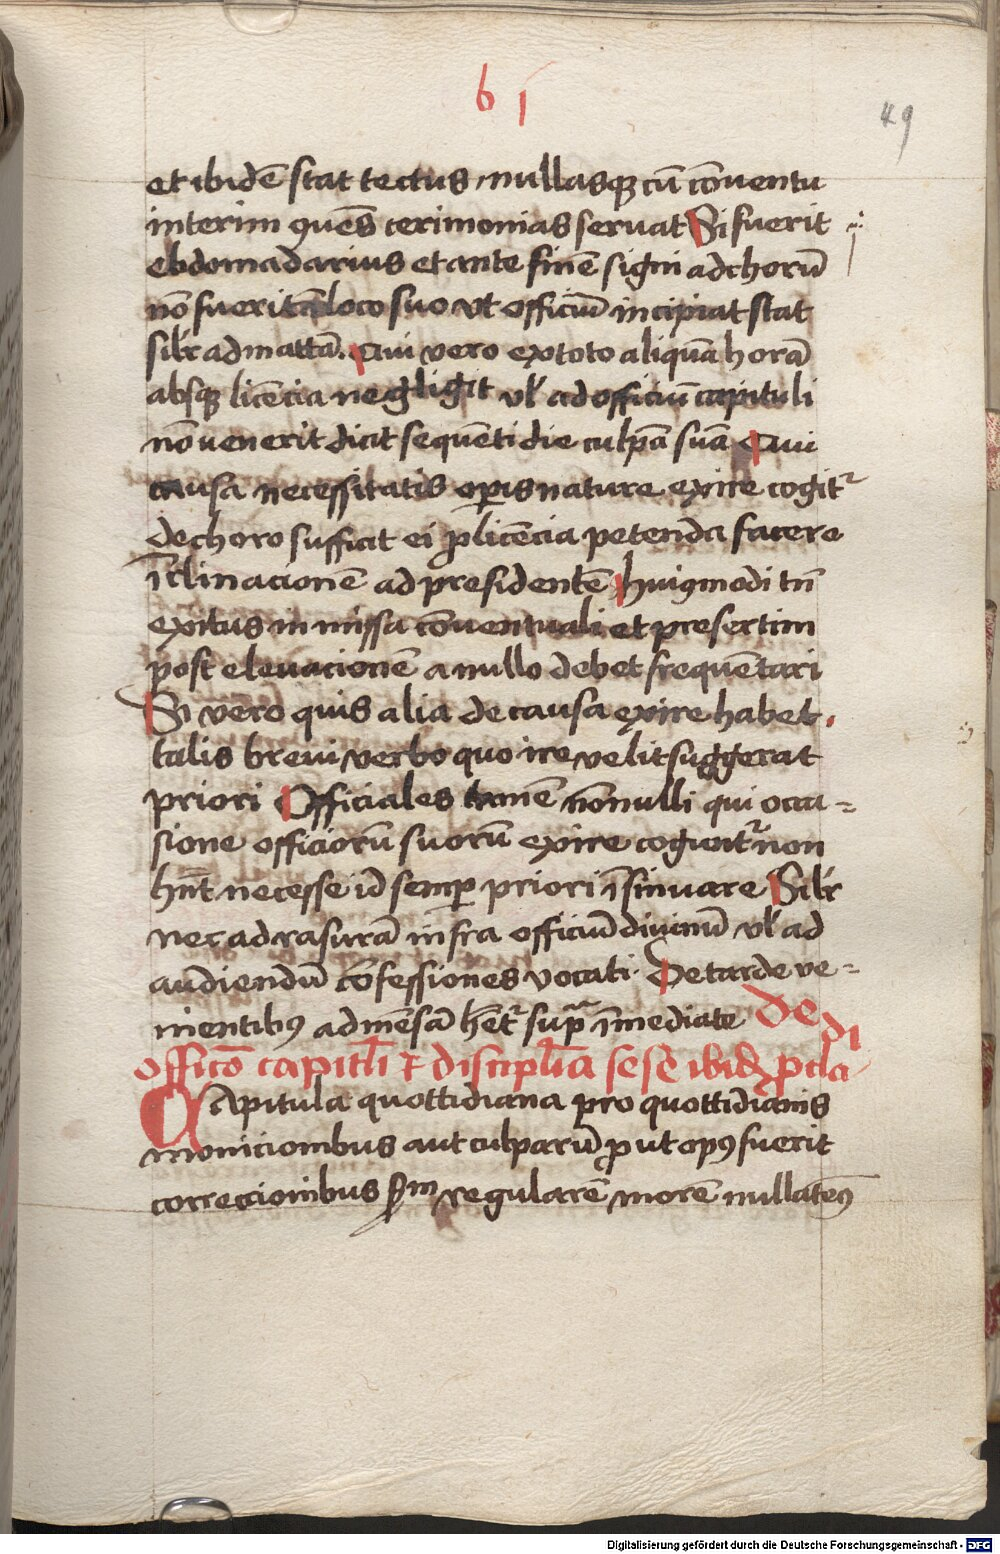 b i
49
et ibidē stat tectus nullasqꝫ cū cōuentu
interim ꝯuēs cerimonias seruat Si fuerit
ebdomadarius et ante finē signi ad chorū
nō fuerit loco suo vt officiū incipiat stat
silr ad mattā. Qui vero ex toto aliquā horā
absqꝫ licēcia negligit vl ad officiū capituli
nō venerit dicit sequēti die culpā suā Qui
causa necessitatis oꝑis nature exire cogitr
de choro sufficit ei ꝓ licēcia petenda facere
īclinacionē ad presidentē huiꝯmodi tn̄
exitus in missa cōuentuali et presertim
post eleuacionē a nullo debet frequētari
Si vero quis alia de causa exire habet.
talis breui verbo quo ire velit suggerat
priori Officiales tamē nōnulli qui occa=
sione officiorū suorū exire cogūtr non
hn̄t necesse id semꝑ priori īsinuare Silr
nec ad rasurā infra officiū diuinū vl ad
audiendū cōfessiones vocati. De tarde ve=
nientibꝯ ad mēsā hētr supa īmediate De di
officō capitli ⁊ disciplīa sese ibidꝫ ꝓcla
CApitula quottidiana pro quottidianis
monicionibus aut culparū ꝓut opꝯ fuerit
correccionibus ẜm regularē morē nullaten̄ꝯ
Digitalisierung gefördert durch die Deutsche Forschungsgemeinschaft - DFG